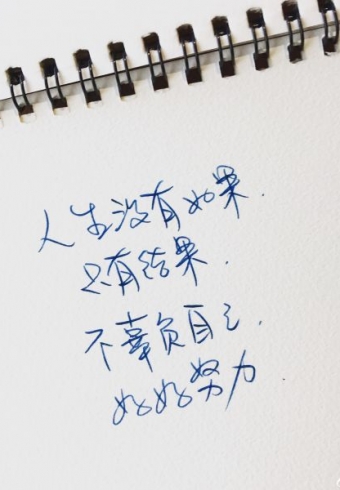 人生没有如果.
只有结果.
不辜负自己.
好好努力.